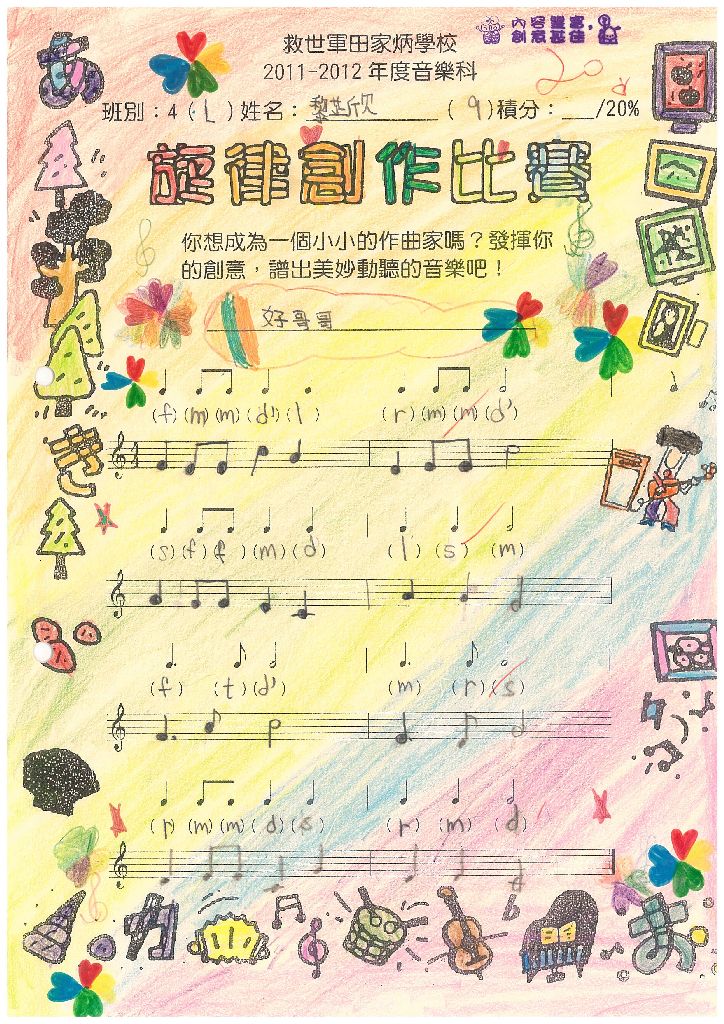 內容豐富,
創意甚佳
救世軍田家炳學校
2011-2012 年度音樂科
20
班別：4 ( L ) 姓名： 黎芷欣 ( 9 ) 積分： ___/20%
旋律創作比賽
你想成為一個小小的作曲家嗎？發揮你
的創意，譜出美妙動聽的音樂吧！
好哥哥
(f) (m) (m) (d') (l) (r) (m) (m) (d')
(s) (f) (f) (m) (d) (l) (s) (m)
(f) (t) (d') (m) (r) (s)
(r) (m) (m) (d) (s) (r) (m) (d)